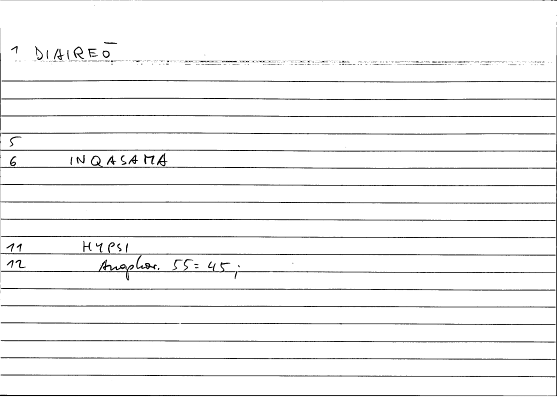 1 DIAIREŌ
5
6 INQASAMA
11 HYPSI
12 Anaphor. 55 = 45;